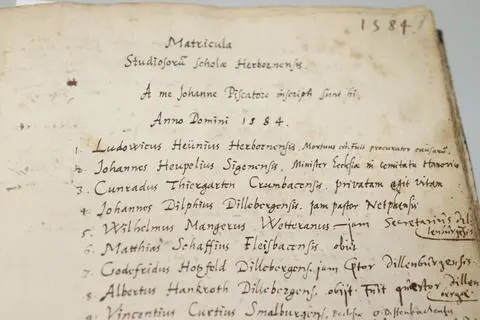 1584
Matricula
Studiosorũ scholæ Herbornensis.
A me Johanne Piscatore inscripti sunt hi
Anno Domini 1584.
1. Ludowicus Heünius Herbornensis, Mortuus est. Fuit procurator causarũ.
2. Johannes Heupelius Sigenensis, Minister Ecclesiæ in comitatu
3. Cunradus Thiergarten Crumbacensis. privatam egit vitam
4. Johannes Dilphius Dillebergensis. jam pastor Netphensis
5. Wilhelmus Mangerus Wetteranus — jam Secretarius Dil-
lenburgensis
6. Matthias Schaffius Fleisbacensis. obijt
7. Godefridus Hotzfeld Dillebergens. jam Dillenburgensis.
8. Albertus Hankroth Dillebergens. obijt. Fuit quæstor Dillen-
9. Vincentius Curtius Smalburgens. Ecclesiæ